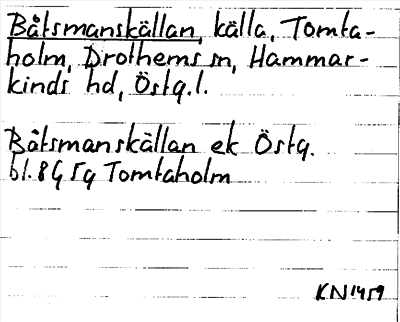 Båtsmanskällan, källa, Tomta-
holm, Drothems sn, Hammar-
kinds hd, Östg.l.
Båtsmanskällan ek Östg.
bl. 8G 5g Tomtaholm
KN 1459